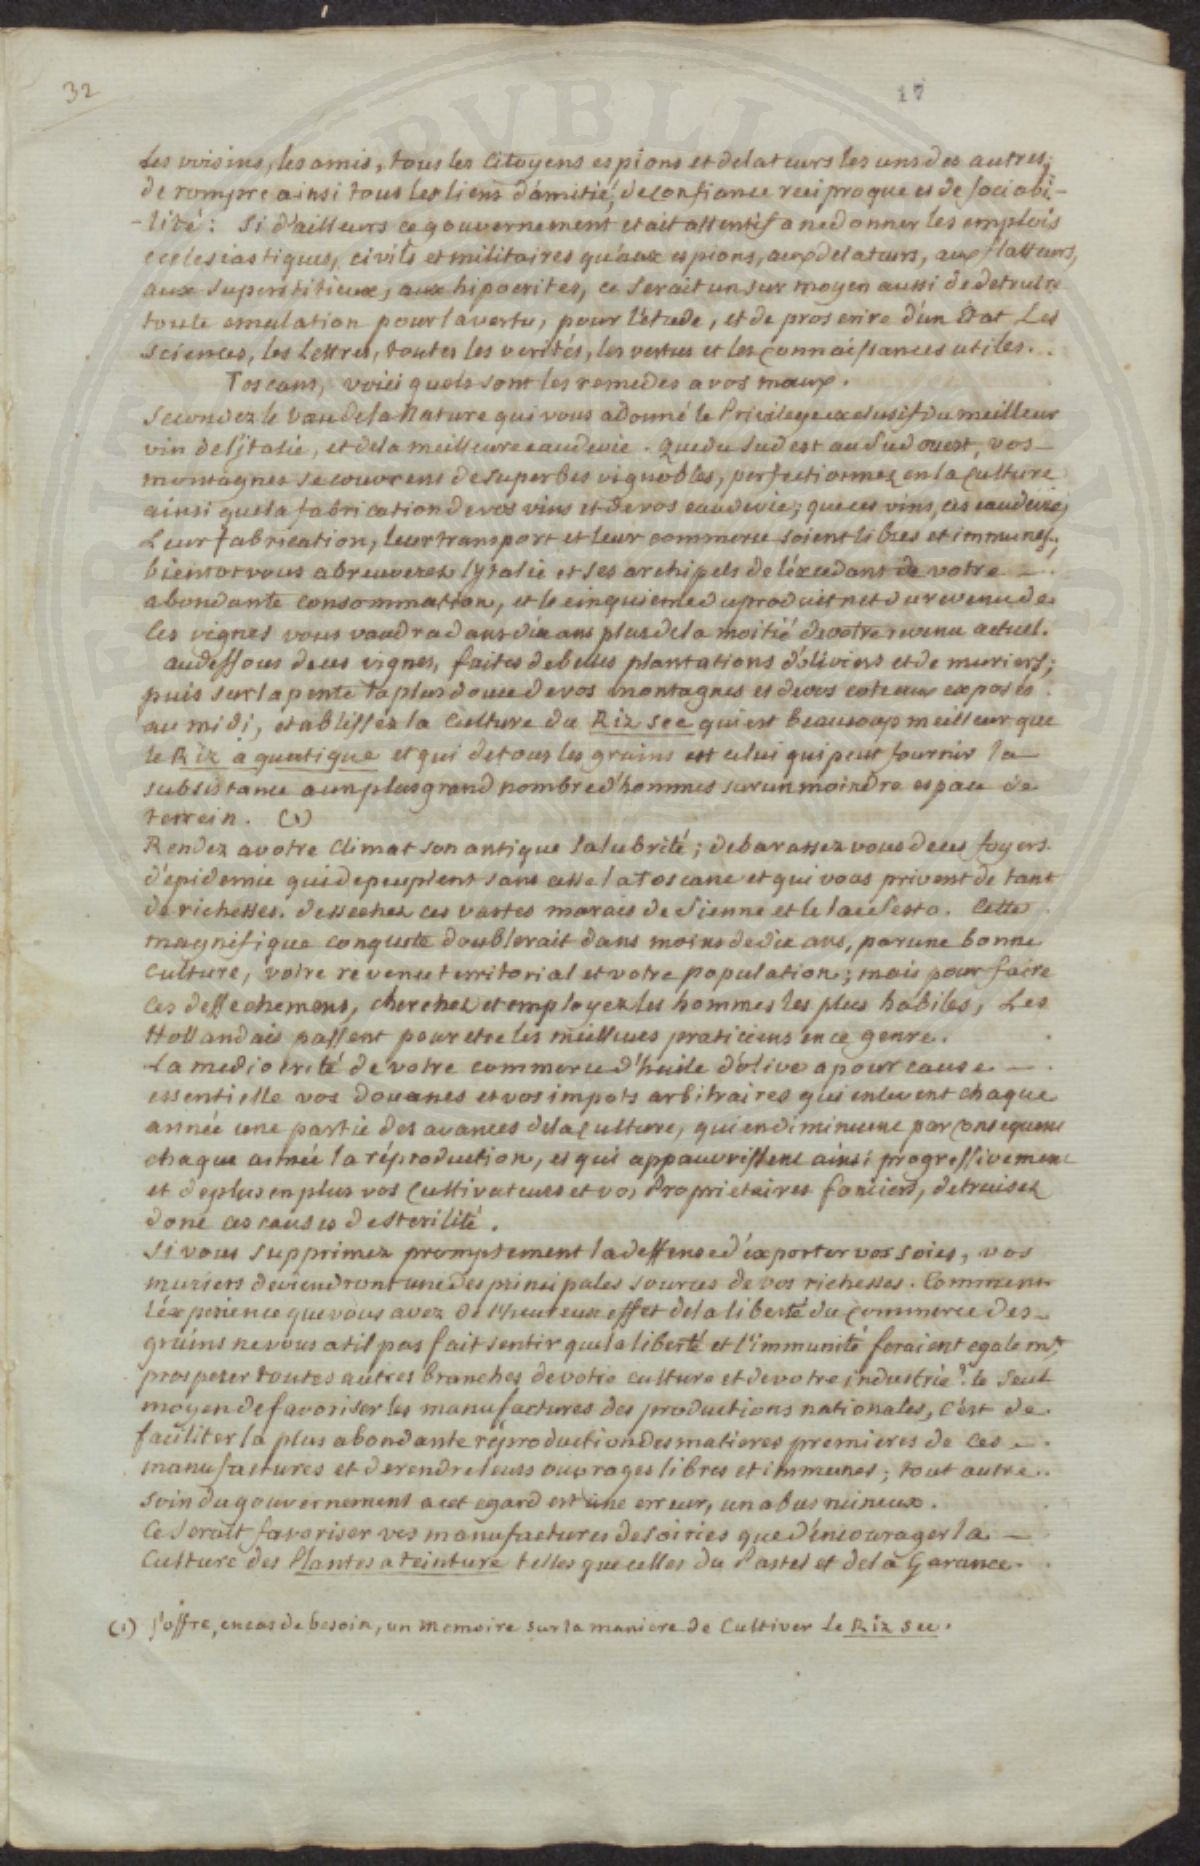 32
17
les voisins, les amis, tous les Citoyens espions et delateurs les uns des autres;
de rompre ainsi tous les liens d'amitié, de confiance reciproque et de sociabi-
-lité: Si d'ailleurs ce gouvernement etait attentif a ne donner les emplois
ecclesiastiques, civils et militaires qu'aux espions, aux delateurs, aux flatteurs,
aux superstitieux, aux hipocrites, ce serait un sur moyen aussi de detruire
toute emulation pour la vertu, pour l'etude, et de proscrire d'un Etat Les
Sciences, les Lettres, toutes les verités, les vertus et les connaissances utiles.
Toscans, voici quels sont les remedes a vos maux.
Secondez le Vœu de la Nature qui vous a donné le Privilege exclusif du meilleur
vin de l'jtalie, et de la meilleure eau de vie. que du Sud est au Sud ouest, vos
montagnes se couvrent de superbes vignobles, perfectionnez en la culture
ainsi que la fabrication de vos vins et de vos eaudevie; que ces vins, ces eaudevie,
Leur fabrication, leur transport et leur commerce soient libres et immunes;
bientot vous abreuverez l'jtalie et ses archipels de l'éxcedant de votre
abondante consommation, et le cinquieme du produit net du revenu de
ces vignes vous vaudra dans dix ans plus de la moitié de votre revenu actuel.
au dessous de ces vignes, faites de belles plantations d'oliviers et de muriers;
puis sur la pente la plus douce de vos montagnes et de vos coteaux exposés
au midi, etablissez la Culture du Riz sec qui est beaucoup meilleur que
le Riz aquatique et qui de tous les grains est celui qui peut fournir la
subsistance a un plus grand nombre d'hommes sur un moindre espace de
terrein. (1)
Rendez a votre Climat son antique salubrité; debarassez vous de ces foyers
d'epidemie qui depeuplent sans cesse la Toscane et qui vous privent de tant
de richesses. dessechez ces vastes marais de Sienne et le lac Sesto. Cette
magnifique conquete doublerait dans moins de dix ans, par une bonne
Culture, votre revenu territorial et votre population; mais pour faire
ces dessechemens, cherchez et employez les hommes les plus habiles, Les
Hollandais passent pour etre les meilleurs praticiens en ce genre.
La mediocrité de votre commerce d'huile d'olive a pour cause
essentielle vos douanes et vos impots arbitraires qui enlevent chaque
année une partie des avances de la culture, qui en diminuent par consequent
chaque année la réproduction, et qui appauvrissent ainsi progressivement
et de plus en plus vos Cultivateurs et vos Proprietaires fonciers, detruisez
donc ces causes de sterilité.
Si vous supprimez promptement la deffense d'exporter vos soies, vos
muriers deviendront une des principales sources de vos richesses. Comment
l'éxperience que vous avez de l'heureux effet de la liberté du commerce des
grains ne vous a til pas fait sentir que la liberté et l'immunité feraient egalemt.
prosperer toutes autres branches de votre culture et de votre industrie? le seul
moyen de favoriser les manufactures des productions nationales, c'est de
faciliter la plus abondante réproduction des matieres premieres de ces
manufactures et de rendre leurs ouvrages libres et immunes; tout autre
soin du gouvernement a cet egard est une erreur, un abus ruineux.
Ce serait favoriser vos manufactures de soiries que d'encourager la
Culture des Plantes a teinture telles que celles du Pastel et de la Garance.
(1) J'offre, en cas de besoin, un memoire sur la maniere de Cultiver le Riz sec.